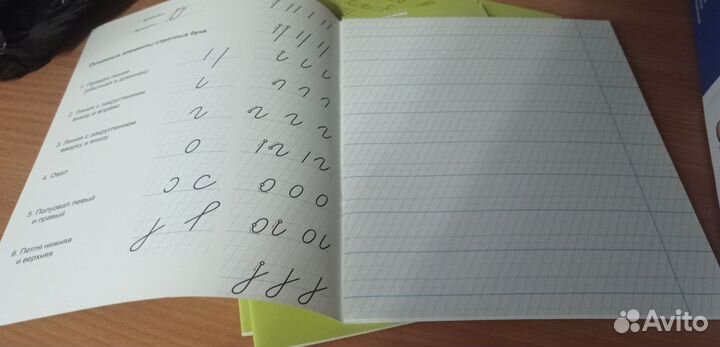 Основные элементы строчных букв
1. Прямая линия
(обычная и длинная)
2. Линия с закруглением
внизу и вправо
3. Линия с закруглением
вверху и внизу
4. Овал
5. Полуовал левый
и правый
6. Петля нижняя
и верхняя
Avito